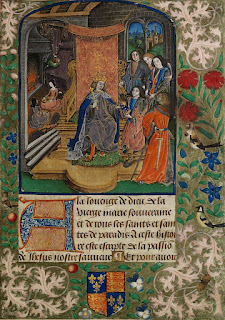 A la louenge de dieu de la
vierge marie souueraine
et de tous ses saints et sain
tes de paradis A ceste histo
ire est escripte de la passio
de Jhesus nostre sauueur Et pour auoir